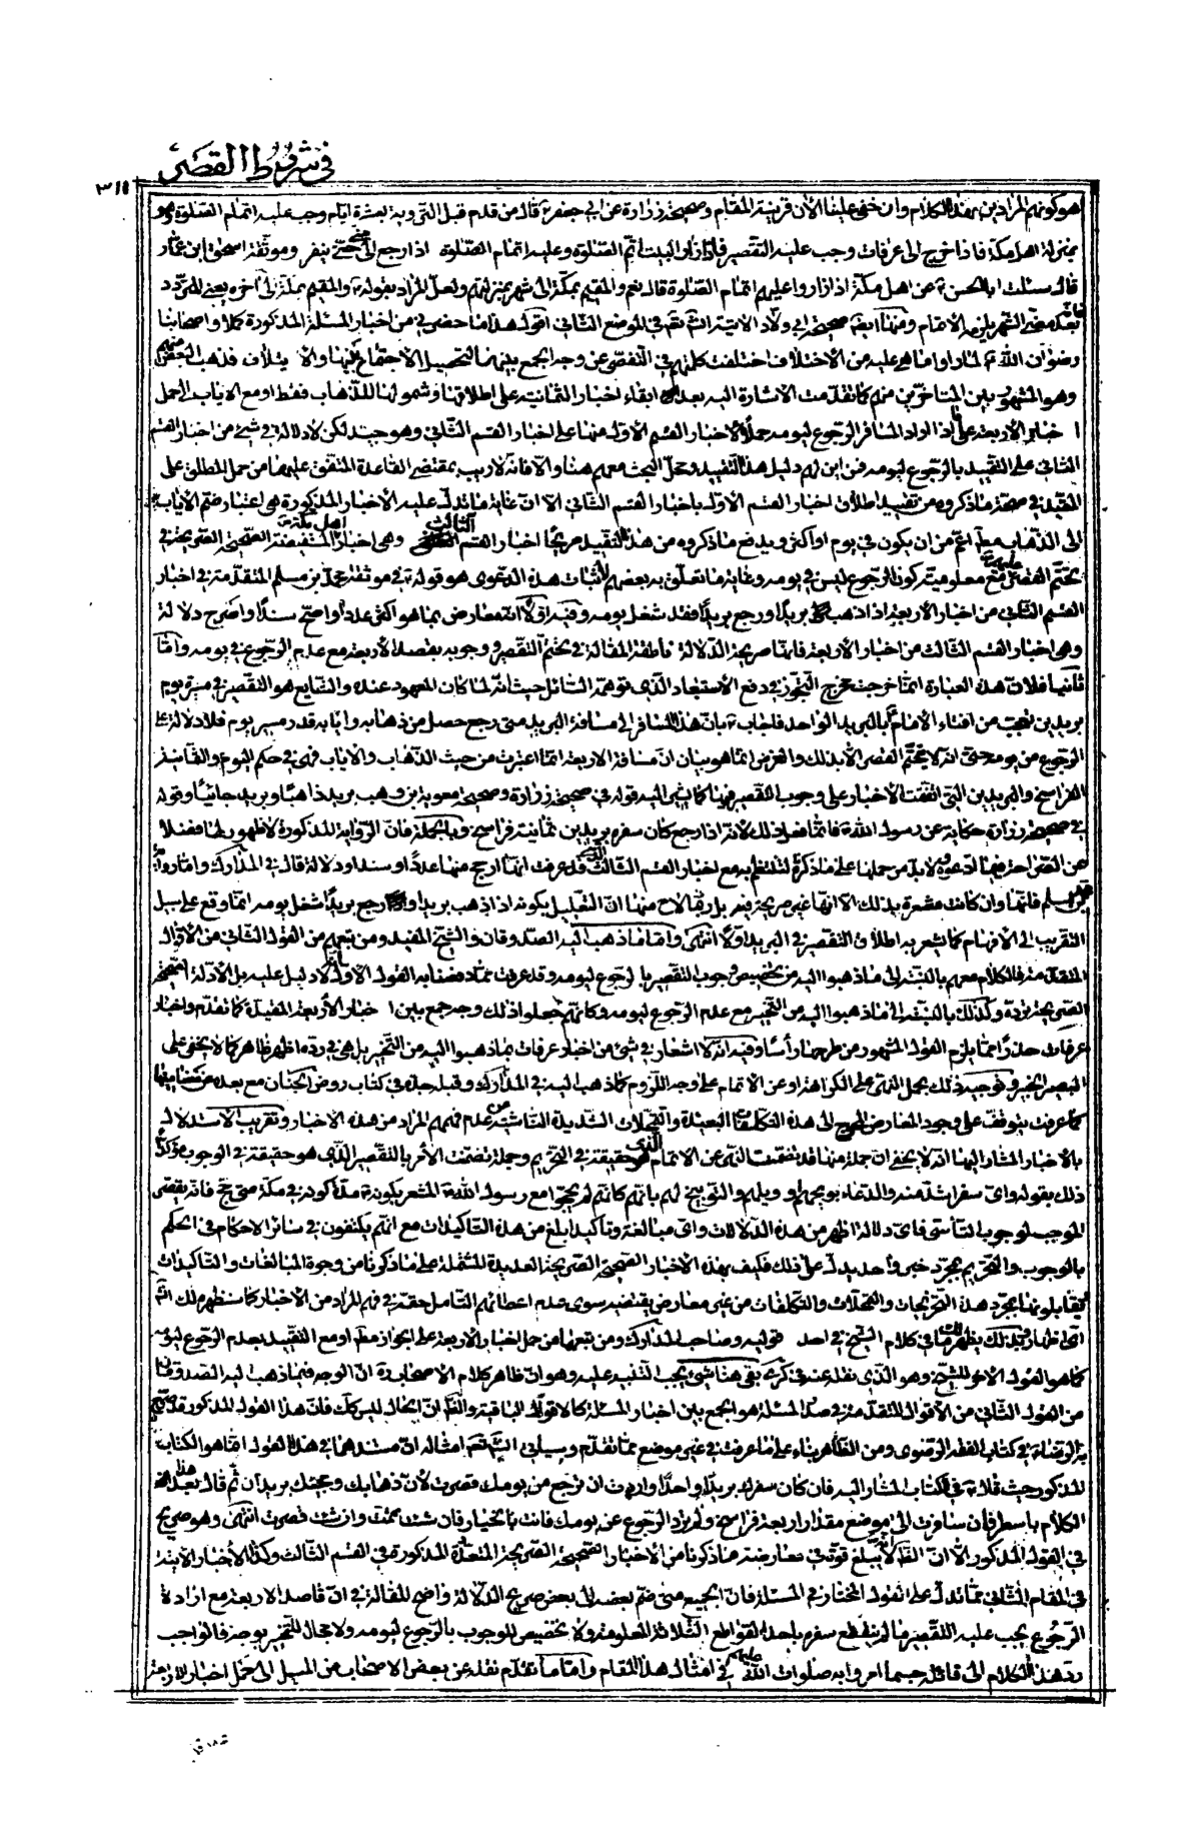 في شروط القصر
٣١١
هو كونهم المرادين بهذا الكلام وان خفي علينا الان قرينة المقام وصحيحة زرارة عن ابي جعفر ع قال من قدم قبل التروية بعشرة ايام وجب عليه اتمام الصلوة وهو
بمنزلة اهل مكة فاذا خرج الى عرفات وجب عليه التقصير فاذا زار البيت اتم الصلوة وعليه اتمام الصلوة اذا رجع الى منى حتى ينفر وموثقة اسحق بن عمار
قال سئلت ابا الحسن ع عن اهل مكة اذا زاروا عليهم اتمام الصلوة قال نعم والمقيم بمكة الى شهر بمنزلتهم ولعل المراد بقوله ع والمقيم بمكة الى اخره يعني المتردد
فانه بعد مضي الشهر يلزمه الاتمام ومنها ايضا صحيحة ابي ولاد الاتية انشا تع في الموضع الثاني اقول هذا ما حضرني من اخبار المسئلة المذكورة كملا واصحابنا
رضوان الله ع لما راوا ما هي عليه من الاختلاف اختلفت كلمتهم في التفصي عن وجه الجمع بينها لتحصيل الاجتماع بينها والايتلاف فذهب البعض منهم
وهو المشهور بين المتاخرين منهم كما تقدمت الاشارة اليه بعد ابقاء اخبار الثمانية على اطلاقها وشمولها للذهاب فقط او مع الاياب الى حمل
اخبار الاربعة على ما اذا اراد المسافر الرجوع ليومه حملا لاخبار القسم الاول منها على اخبار القسم الثاني وهو جيد لكن لا دلالة في شئ من اخبار القسم
الثاني على التقييد بالرجوع ليومه فمن اين لهم دليل هذا التقييد ومحل البحث معهم هنا والا فانه لا ريب بمقتضى القاعدة المتفق عليها من حمل المطلق على
المقيد في صحة ما ذكروه من تقييد اطلاق اخبار القسم الاول باخبار القسم الثاني الا ان غاية ما تدل عليه الاخبار المذكورة هي اعتبار ضم الاياب
الى الذهاب معا اعم من ان يكون في يوم او اكثر ويدفع ما ذكروه من هذا التقييد صريحا اخبار القسم الثالث وهي اخبار اهل مكة المستفيضة الصحيحة الصريحة في
تحتم القصر عليهم مع معلومية كون الرجوع ليس في يومه وغاية ما تعلق به بعضهم لاثبات هذه الدعوى هو قوله ع في موثقة محمد بن مسلم المتقدمة في اخبار
القسم الثاني من اخبار الاربعة اذا ذهب بريدا ورجع بريدا فقد شغل يومه وفيه اولا انه معارض بما هو اكثر عددا واصح سندا واصرح دلالة
وهي اخبار القسم الثالث من اخبار الاربعة فانها صريحة الدلالة ناطقة المقالة في تحتم التقصير ووجوبه بقصد الاربعة مع عدم الرجوع في يومه واما
ثانيا فلان هذه العبارة انما خرجت مخرج التجوز في دفع الاستبعاد الذي توهمه السائل حيث انه لما كان المعهود عنده والشايع هو التقصير في مسيرة يوم
بريدين تعجب من افتاء الامام ع بالبريد الواحد فاجاب ع بان هذا المسافر الى مسافة البريد متى رجع حصل من ذهابه وايابه قدر مسير يوم فلا دلالة على
الرجوع من يومه حتى انه لا يتحتم القصر الا بذلك والغرض انما هو بيان ان مسافة الاربعة انما اعتبرت من حيث الذهاب والاياب فهي في حكم اليوم والثمانية
الفراسخ والبريدين التي اتفقت الاخبار على وجوب التقصير فيها كما يشير اليه قوله في صحيحة زرارة وصحيحة معوية بن وهب بريد ذاهبا وبريد جائيا وقوله
في صحيحة زرارة حكاية عن رسول الله ص فانما فعل ذلك لانه اذا رجع كان سفره بريدين ثمانية فراسخ وبالجملة فان الرواية المذكورة لا ظهور لها فضلا
عن الصراحة فيما ادعوه ولابد من حملها على ما ذكرنا لتلتئم به مع اخبار القسم الثالث الذي قد عرفت انها ارجح منها عددا وسندا ودلالة قال في المدارك واما رواية
محمد بن مسلم فانها وان كانت مشعرة بذلك الا انها غير صريحة فيه بل ربما لاح منها ان التعليل بكونه اذا ذهب بريدا ورجع بريدا شغل يومه انما وقع على سبيل
التقريب الى الافهام كما يشعر به اطلاق التقصير في البريد اولا انتهى واما ما ذهب اليه الصدوقان والشيخ المفيد ومن تبعهم من القول الثاني من الاقوال
المتقدمة فالكلام معهم بالنسبة الى ما ذهبوا اليه من تخصيص وجوب التقصير بالرجوع ليومه وقد عرفت مما دفعنا به القول الاول انه لا دليل عليه بل الادلة الصحيحة
الصريحة ترده وكذلك بالنسبة الى ما ذهبوا اليه من التخيير مع عدم الرجوع ليومه وكانهم جعلوا ذلك وجه جمع بين اخبار الاربعة المقيدة كما تقدم واخبار
عرفات حذرا مما يلزم القول المشهور من طرحها راسا وفيه انه لا اشعار في شئ من اخبار عرفات بما ذهبوا اليه من التخيير بل هي في رده اظهر ظاهر كما لا يخفى على
البصير الخبير وتوجيه ذلك بحمل النهي على الكراهة او عن الاتمام على وجه اللزوم كما ذهب اليه في المدارك وقبله جده في كتاب روض الجنان مع بعده عن سياقها
كما عرفت يتوقف على وجود المعارض المحوج الى هذه التكلفات البعيدة والتمحلات الشديدة الناشئة عن عدم فهم المراد من هذه الاخبار وتقريب الاستدلال
بالاخبار المشار اليها انه لا يخفى ان جملة منها قد تضمنت النهي عن الاتمام الذي هو حقيقة في التحريم وجملة تضمنت الأمر بالتقصير الذي هو حقيقة في الوجوب مؤكدا
ذلك بقوله واي سفر اشد منه والدعاء بويحهم او ويلهم والتوبيخ لهم بانهم كانهم لم يحجوا مع رسول الله ص المشعر بكونه مدة كونه في مكة متى حج فانه يقصر
الموجب لوجوب التأسي فاي دلالة اظهر من هذه الدلالات واي مبالغة وتاكيد ابلغ من هذه التاكيدات مع انهم يكتفون في سائر الاحكام في الحكم
بالوجوب والتحريم بمجرد خبر واحد يدل على ذلك فكيف بهذه الاخبار الصحيحة الصريحة العديدة المشتملة على ما ذكرنا من وجوه المبالغات والتاكيدات
يقابلونها بمجرد هذه التخريجات والتمحلات والتكلفات من غير معارض يقتضيه سوى عدم اعطائهم التامل حقه في فهم المراد من الاخبار كما سنظهره لك انشاء
الله اي اظهار وبذلك يظهر لك ما في كلام الشيخ في احد قوليه وصاحب المدارك ومن تبعهما من حمل اخبار الاربعة على الجواز مطلقا او مع التقييد بعدم الرجوع ليومه
كما هو القول الاخر للشيخ وهو الذي نقله عنه في كرى بقي هنا شئ يجب التنبيه عليه وهو ان ظاهر كلام الاصحاب ره ان الوجه فيما ذهب اليه الصدوقان
من القول الثاني من الاقوال المتقدمة في صدر المسئلة هو الجمع بين اخبار المسئلة كالاقوال الباقية والظ ان الحال ليس كك فان هذا القول المذكور قد صرح
به الرضا ع في كتاب الفقه الرضوي ومن الظاهر بناء على ما عرفت في غير موضع مما تقدم وسياتي انشا تع امثاله ان مستندهما في هذا القول انما هو الكتاب
المذكور حيث قال ع في الكتاب المشار اليه فان كان سفرك بريدا واحدا واردت ان ترجع من يومك قصرت لان ذهابك ومجيئك بريدان ثم قال بعد هذا
الكلام باسطر فان سافرت الى موضع مقدار اربعة فراسخ ولم ترد الرجوع عن يومك فانت بالخيار فان شئت تممت وان شئت قصرت انتهى وهو صريح
في القول المذكور الا ان الظ انه لا يبلغ قوة في معارضته ما ذكرنا من الاخبار الصحيحة الصريحة المتعددة المذكورة في القسم الثالث وكذا الأخبار الآتية
في المقام الثاني مما تدل على القول المختار في المسئلة فان الجميع متى ضم بعضه الى بعض صريح الدلالة واضح المقالة في ان قاصد الاربعة مع ارادة
الرجوع يجب عليه التقصير ما لم ينقطع سفره باحد القواطع الثلاثة المعلومة ولا تخصيص للوجوب بالرجوع ليومه ولا مجال للتخيير بوجه فالواجب
رد هذا الكلام الى قائله حسبما امروا به صلوات الله عليهم في امثال هذا المقام واما ما تقدم نقله عن بعض الاصحاب من الميل الى حمل اخبار الاربعة